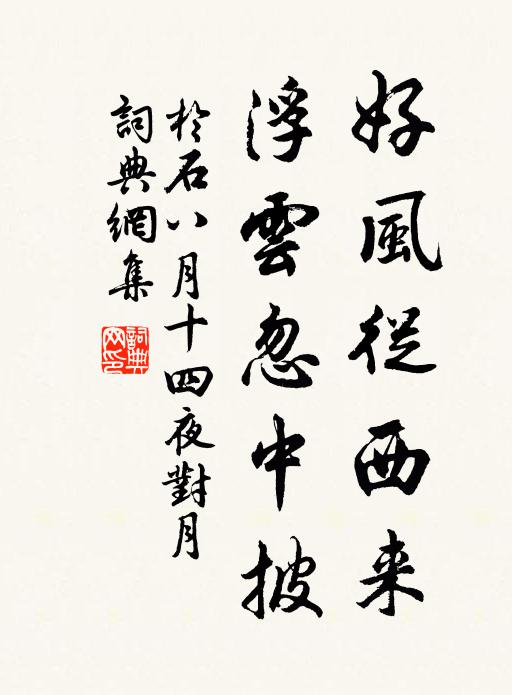 好風從西来
浮雲忽中披
於石八月十四夜對月
詞典網集
詞典網印